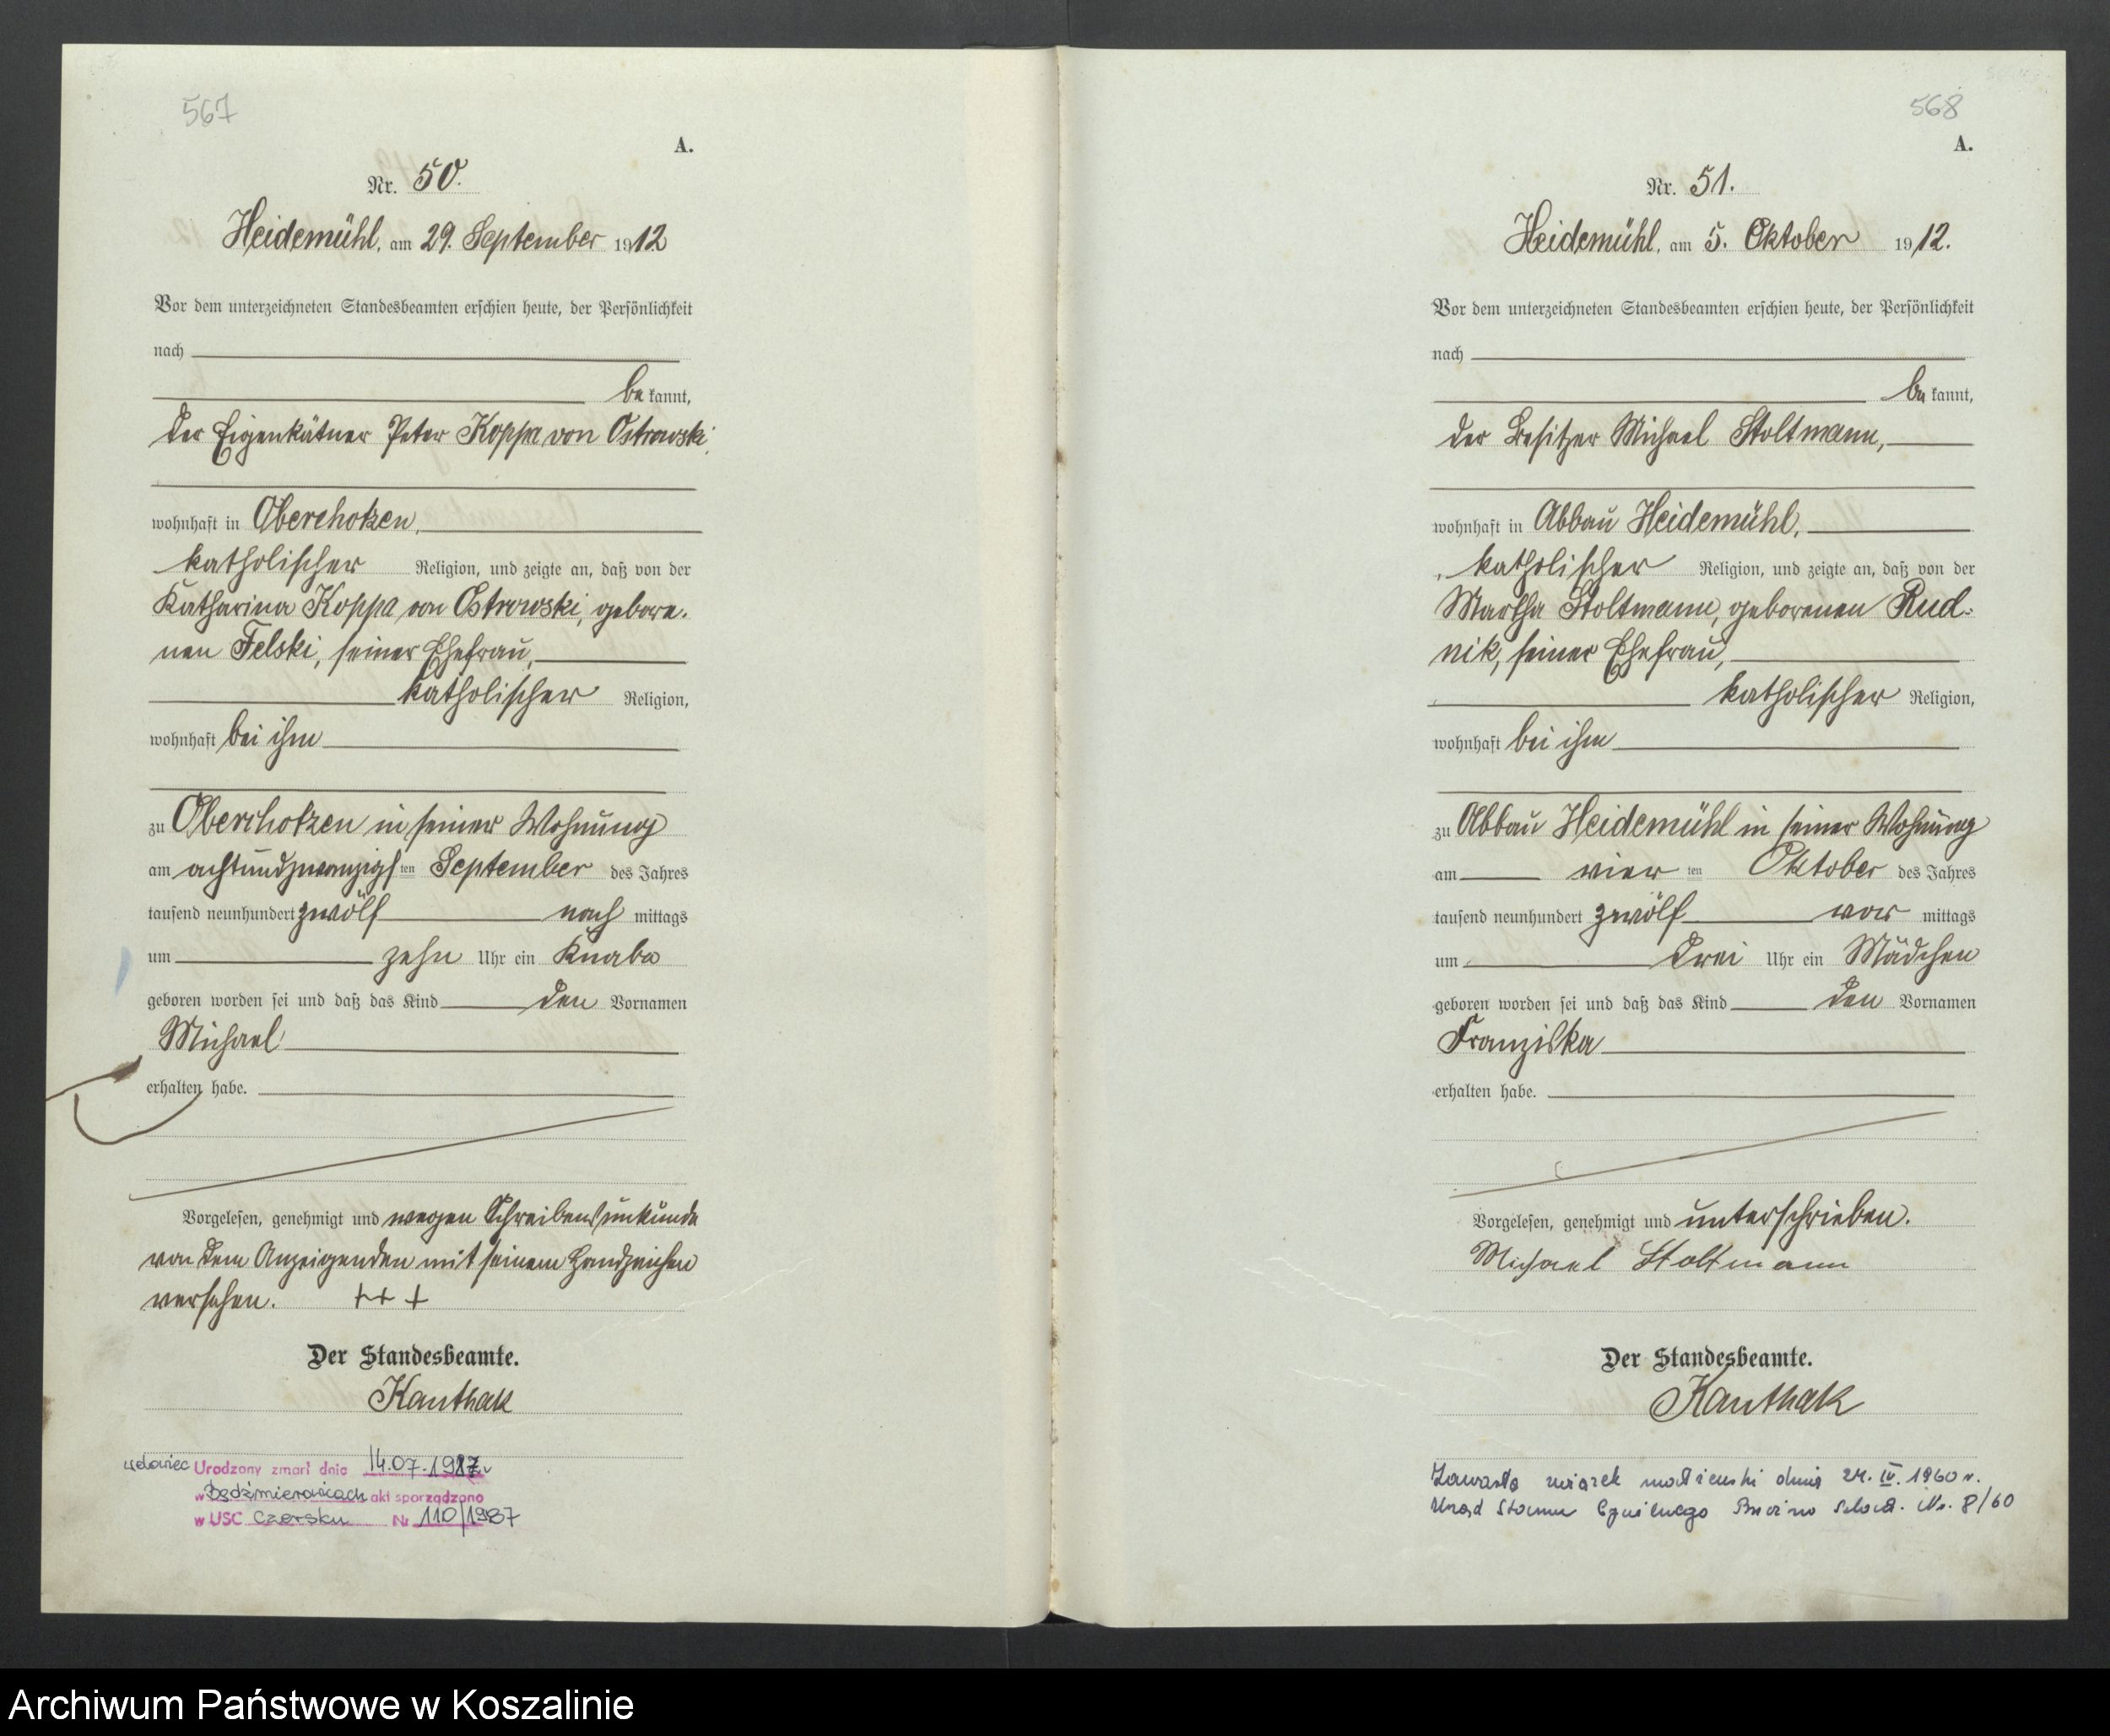 567
A.
Nr. 50.
Heidemühl, am 29. September 1912
Vor dem unterzeichneten Standesbeamten erschien heute, der Persönlichkeit
nach
be kannt,
der Eigenkätner Peter Koppa von Ostrowski,
wohnhaft in Oberchotzen,
katholischer Religion, und zeigte an, daß von der
Katharina Koppa von Ostrowski, gebore-
nen Felski, seiner Ehefrau,
katholischer Religion,
wohnhaft bei ihm
zu Oberchotzen in seiner Wohnung
am achtundzwanzigsten September des Jahres
tausend neunhundert zwölf nach mittags
um zehn Uhr ein Knabe
geboren worden sei und daß das Kind den Vornamen
Michael
erhalten habe.
Vorgelesen, genehmigt und wegen Schreibensunkunde
von dem Anzeigenden mit seinem Handzeichen
versehen. +++
Der Standesbeamte.
Kanthak
Urodzony zmarł dnia 14.07.1987r
w Będźmierowicach akt sporządzono
w USC Czersku Nr 110/1987
568
A.
Nr. 51.
Heidemühl, am 5. Oktober 1912.
Vor dem unterzeichneten Standesbeamten erschien heute, der Persönlichkeit
nach
be kannt,
der Besitzer Michael Stoltmann,
wohnhaft in Abbau Heidemühl,
katholischer Religion, und zeigte an, daß von der
Martha Stoltmann, geborenen Rud-
nik, seiner Ehefrau,
katholischer Religion,
wohnhaft bei ihm
zu Abbau Heidemühl in seiner Wohnung
am vier ten Oktober des Jahres
tausend neunhundert zwölf vor mittags
um drei Uhr ein Mädchen
geboren worden sei und daß das Kind den Vornamen
Franziska
erhalten habe.
Vorgelesen, genehmigt und unterschrieben.
Michael Stoltmann
Der Standesbeamte.
Kanthak
Zawarła związek małżeński dnia 24. IV. 1960 r.
Urząd Stanu Cywilnego Nr. 8/60
Archiwum Państwowe w Koszalinie